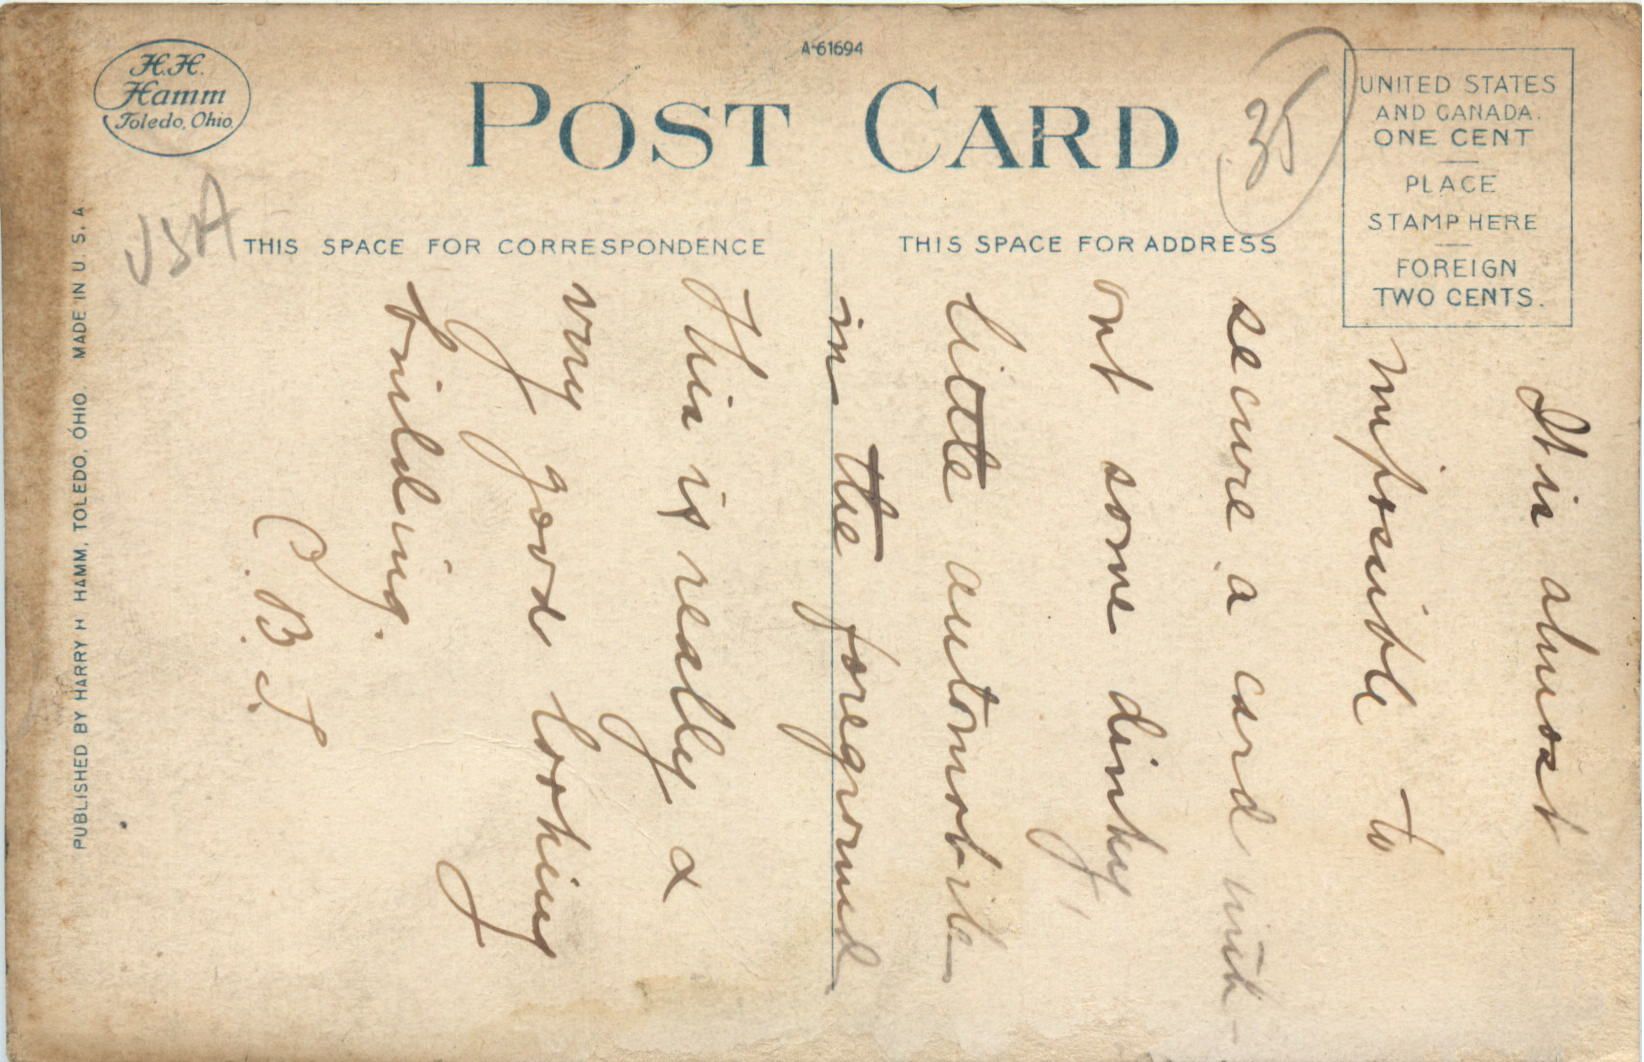 H.H.
Hamm
Toledo, Ohio
A-61694
POST CARD
35
UNITED STATES
AND CANADA.
ONE CENT
PLACE
STAMP HERE
FOREIGN
TWO CENTS.
USA
THIS SPACE FOR CORRESPONDENCE
THIS SPACE FOR ADDRESS
PUBLISHED BY HARRY H HAMM, TOLEDO, OHIO. MADE IN U. S. A
It is almost
impossible to
secure a card with-
out some dinky,
little automobile
in the foreground
This is really a
very good looking
building.
C. B. T.